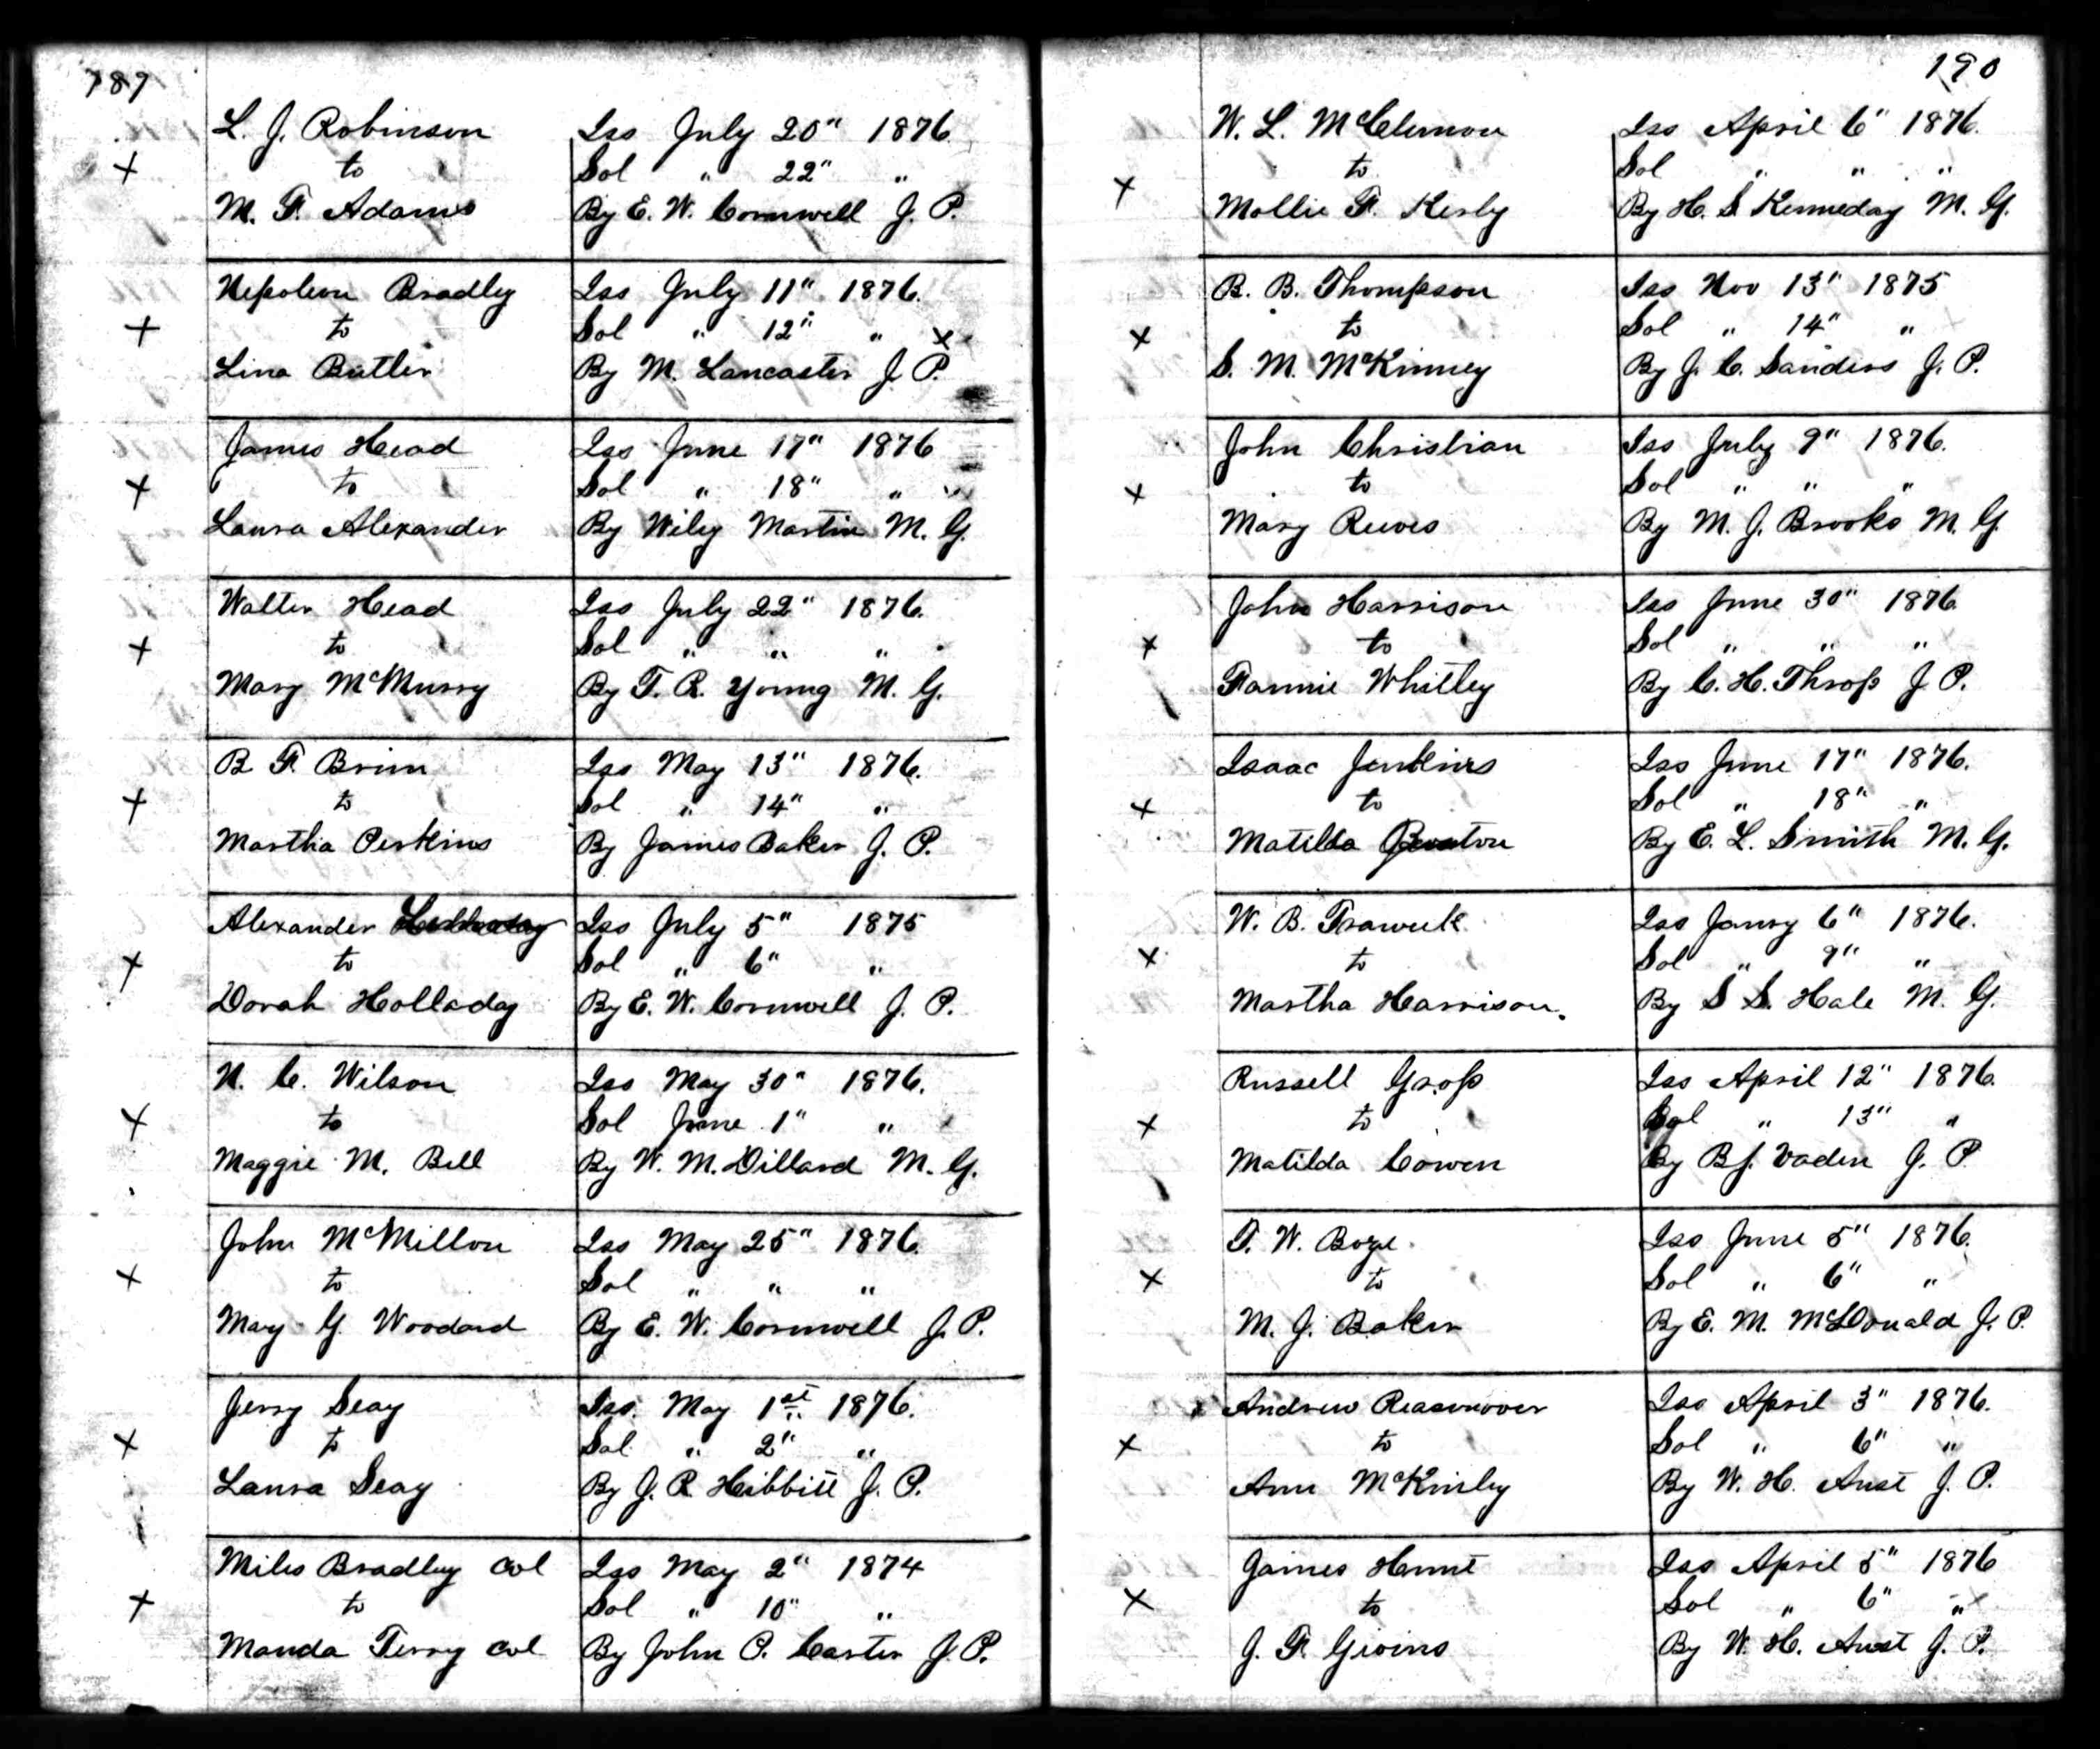 189
L. J. Robinson
to
M. F. Adams
Iss July 20" 1876
Sol " 22" "
By E. W. Cornwell J. P.
Nepoleon Bradley
to
Lina Butler
Iss July 11" 1876.
Sol " 12" "
By M. Lancaster J. P.
James Head
to
Laura Alexander
Iss June 17" 1876
Sol " 18" "
By Wiley Martin M. G.
Walter Head
to
Mary McMurry
Iss July 22" 1876.
Sol " " "
By T. R. Young M. G.
B F. Brim
to
Martha Perkins
Iss May 13" 1876.
Sol " 14" "
By James Baker J. P.
Alexander
to
Dorah Holladay
Iss July 5" 1875
Sol " 6" "
By E. W. Cornwell J. P.
N. C. Wilson
to
Maggie M. Bell
Iss May 30" 1876.
Sol June 1" "
By W. M. Dillard M. G.
John McMillon
to
Mary G. Woodard
Iss May 25" 1876.
Sol " " "
By E. W. Cornwell J. P.
Jerry Seay
to
Laura Seay
Iss. May 1st 1876.
Sol " 2" "
By J. R. Hibbitt J. P.
Miles Bradley col
to
Manda Terry col
Iss May 2" 1874
Sol " 10" "
By John P. Carter J. P.
190
W. L. McClernon
to
Mollie F. Kerly
Iss April 6" 1876.
Sol " " "
By H. S. Kenneday M. G.
R. B. Thompson
to
S. M. McKinney
Iss Nov 13" 1875
Sol " 14" "
By J. C. Sanders J. P.
John Christian
to
Mary Reeves
Iss July 9" 1876.
Sol " " "
By M. J. Brooks M. G
John Harrison
to
Fannie Whitley
Iss June 30" 1876
Sol " " "
By C. H. Throp J. P.
Isaac Jenkins
to
Matilda
Iss June 17" 1876.
Sol " 18" "
By E. L. Smith M. G.
W. B. Traweek
to
Martha Harrison.
Iss Janry 6" 1876.
Sol " 9" "
By S S. Hale M. G.
Russell Gross
to
Matilda Cowen
Iss April 12" 1876.
Sol " 13" "
By B J. Vaden J. P
T. W. Boze
to
M. J. Baker
Iss June 5" 1876.
Sol " 6" "
By E. M. McDonald J. P.
Andrew Reasonover
to
Ann McKinley
Iss April 3" 1876.
Sol " 6" "
By W. H. Aust J. P.
Gaines Hunt
to
J. F. Givins
Iss April 5" 1876
Sol " 6" "
By W. H. Aust J. P.